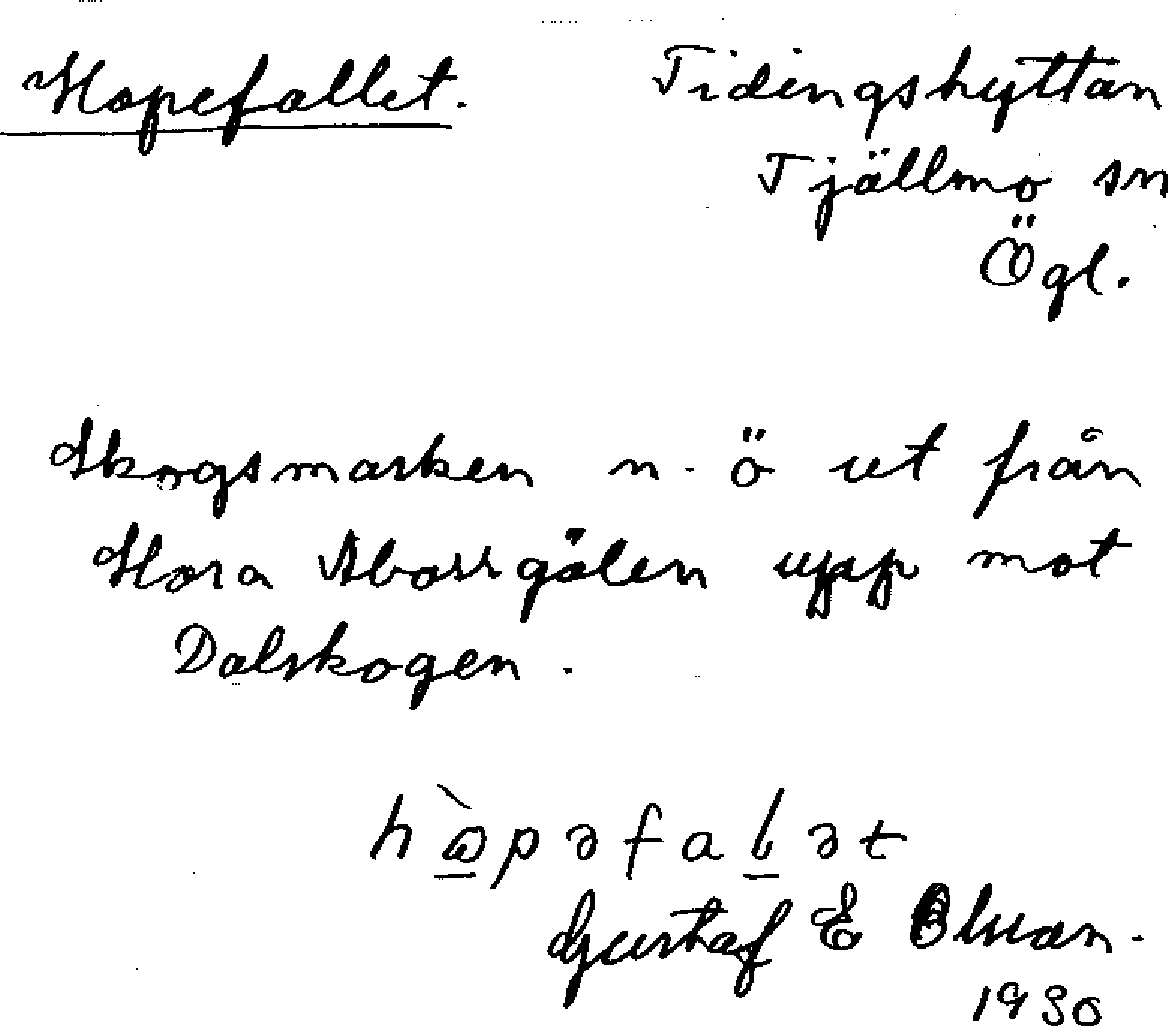 Hopefallet. Tidingshyttan
Tjällmo sn
Ögl.
Skogsmarken n. ö ut från
Stora Aborrgölen upp mot
Dalskogen.
Gustaf E Olsson.
1930